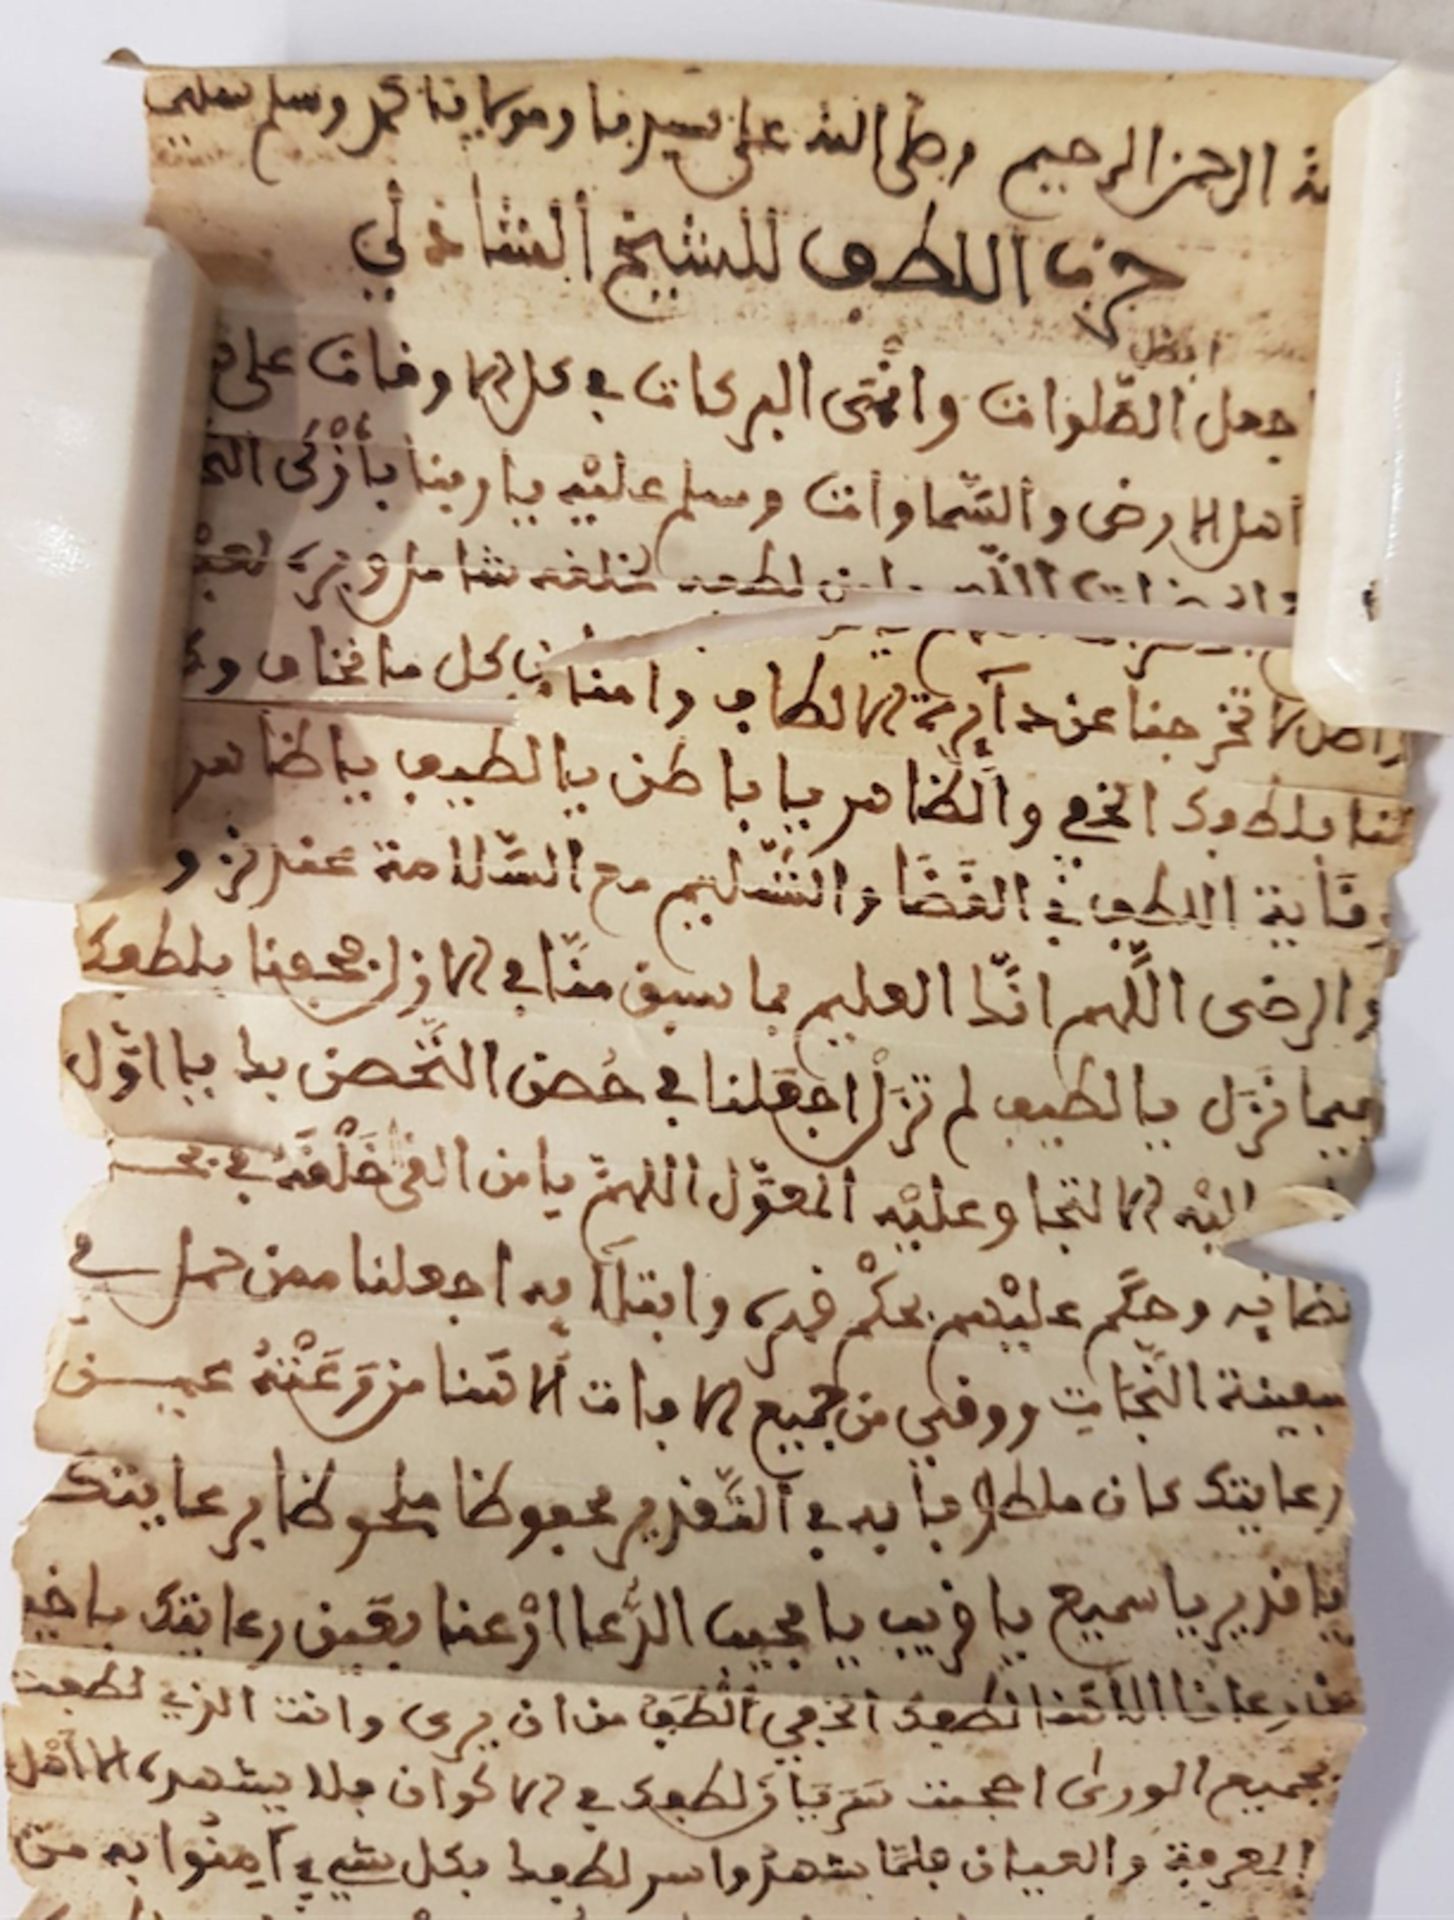 الله الرحمن الرحيم وصلى الله على سيدنا ومولانا محمد وسلم تسليما
حزب اللطف للشيخ الشاذلي
افضل
اجعل الصلوات وانمى البركات في كل الاوقات على
أهل الارض والسماوات وسلم عليه يا ربنا بأزكى
اللهم يا من لطفه بخلقه شامل
لا تخرجنا عن دآيرة الالطاف وامنا من كل ما نخاف
لنا بلطفك الخفي والظاهر يا باطن يا لطيف يا ظاهر
وقاية اللطف في القضا والتسليم مع السلامة عند نز و
والرضى اللهم انك العليم بما سبق منا في الازل فحفنا بلطفك
فيما نزل يا لطيف لم تزل اجعلنا في حصن التحصن بك يا اول
اليه الالتجا وعليه المعول اللهم يا من القى خلقه في بحـــ
قضايه وحكم عليهم بحكم قهره وابتلا به اجعلنا ممن حمل في
سفينة النجات ووقي من جميع الافات الاهنا من رعته عيـــن
رعايتك كان ملطوفا به في التقدير محفوظا ملحوظا برعايتك
يا قدير يا سميع يا قريب يا مجيب الدعا ارعنا بعين رعايتك يا خير
من رعانا الاهنا لطفك الخفي ألطف من ان يرى وانت الذي لطفت
بجميع الورى احجبت سريان لطفك في الاكوان فلا يشهده الا أهل
المعرفة والعيان فلما شهدوا سر لطفك بكل شيء آمنوا به من